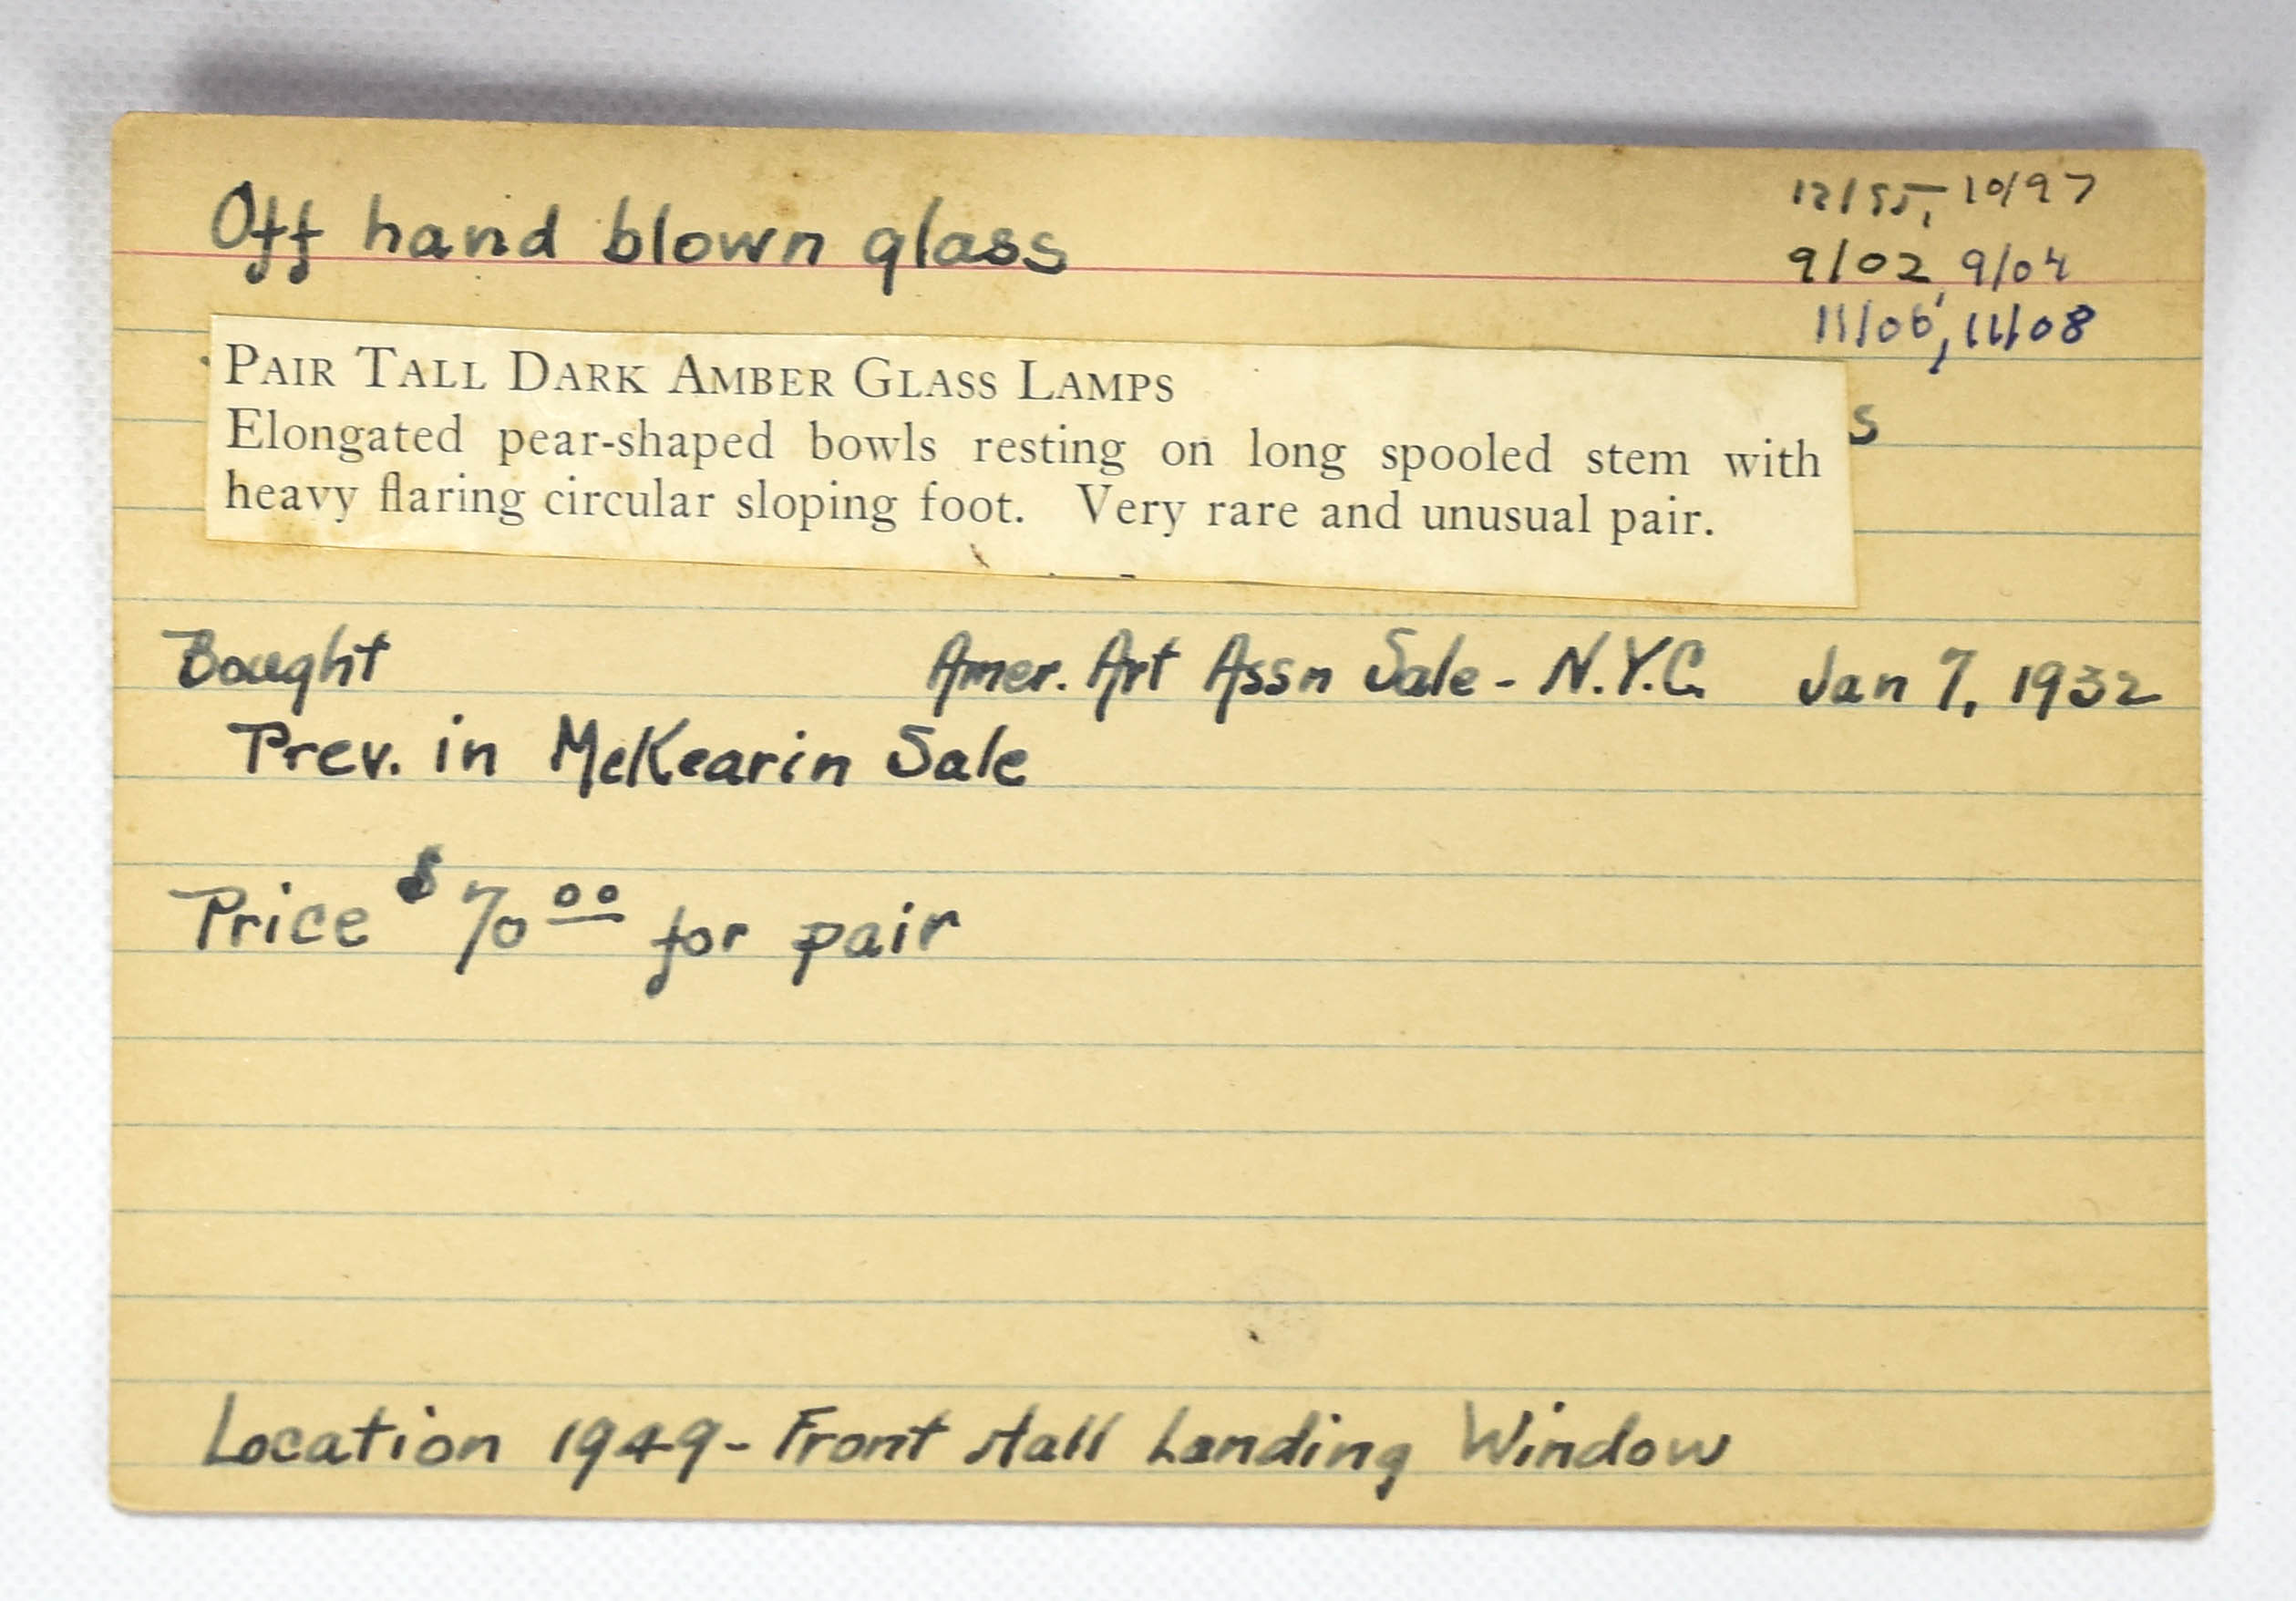 Off hand blown glass
12/95, 10/97
9/02, 9/04
11/06, 11/08
PAIR TALL DARK AMBER GLASS LAMPS
s
Elongated pear-shaped bowls resting on long spooled stem with
heavy flaring circular sloping foot. Very rare and unusual pair.
Bought Amer. Art Assn Sale - N.Y.C. Jan 7, 1932
Prev. in McKearin Sale
Price $70.00 for pair
Location 1949 - Front Hall Landing Window